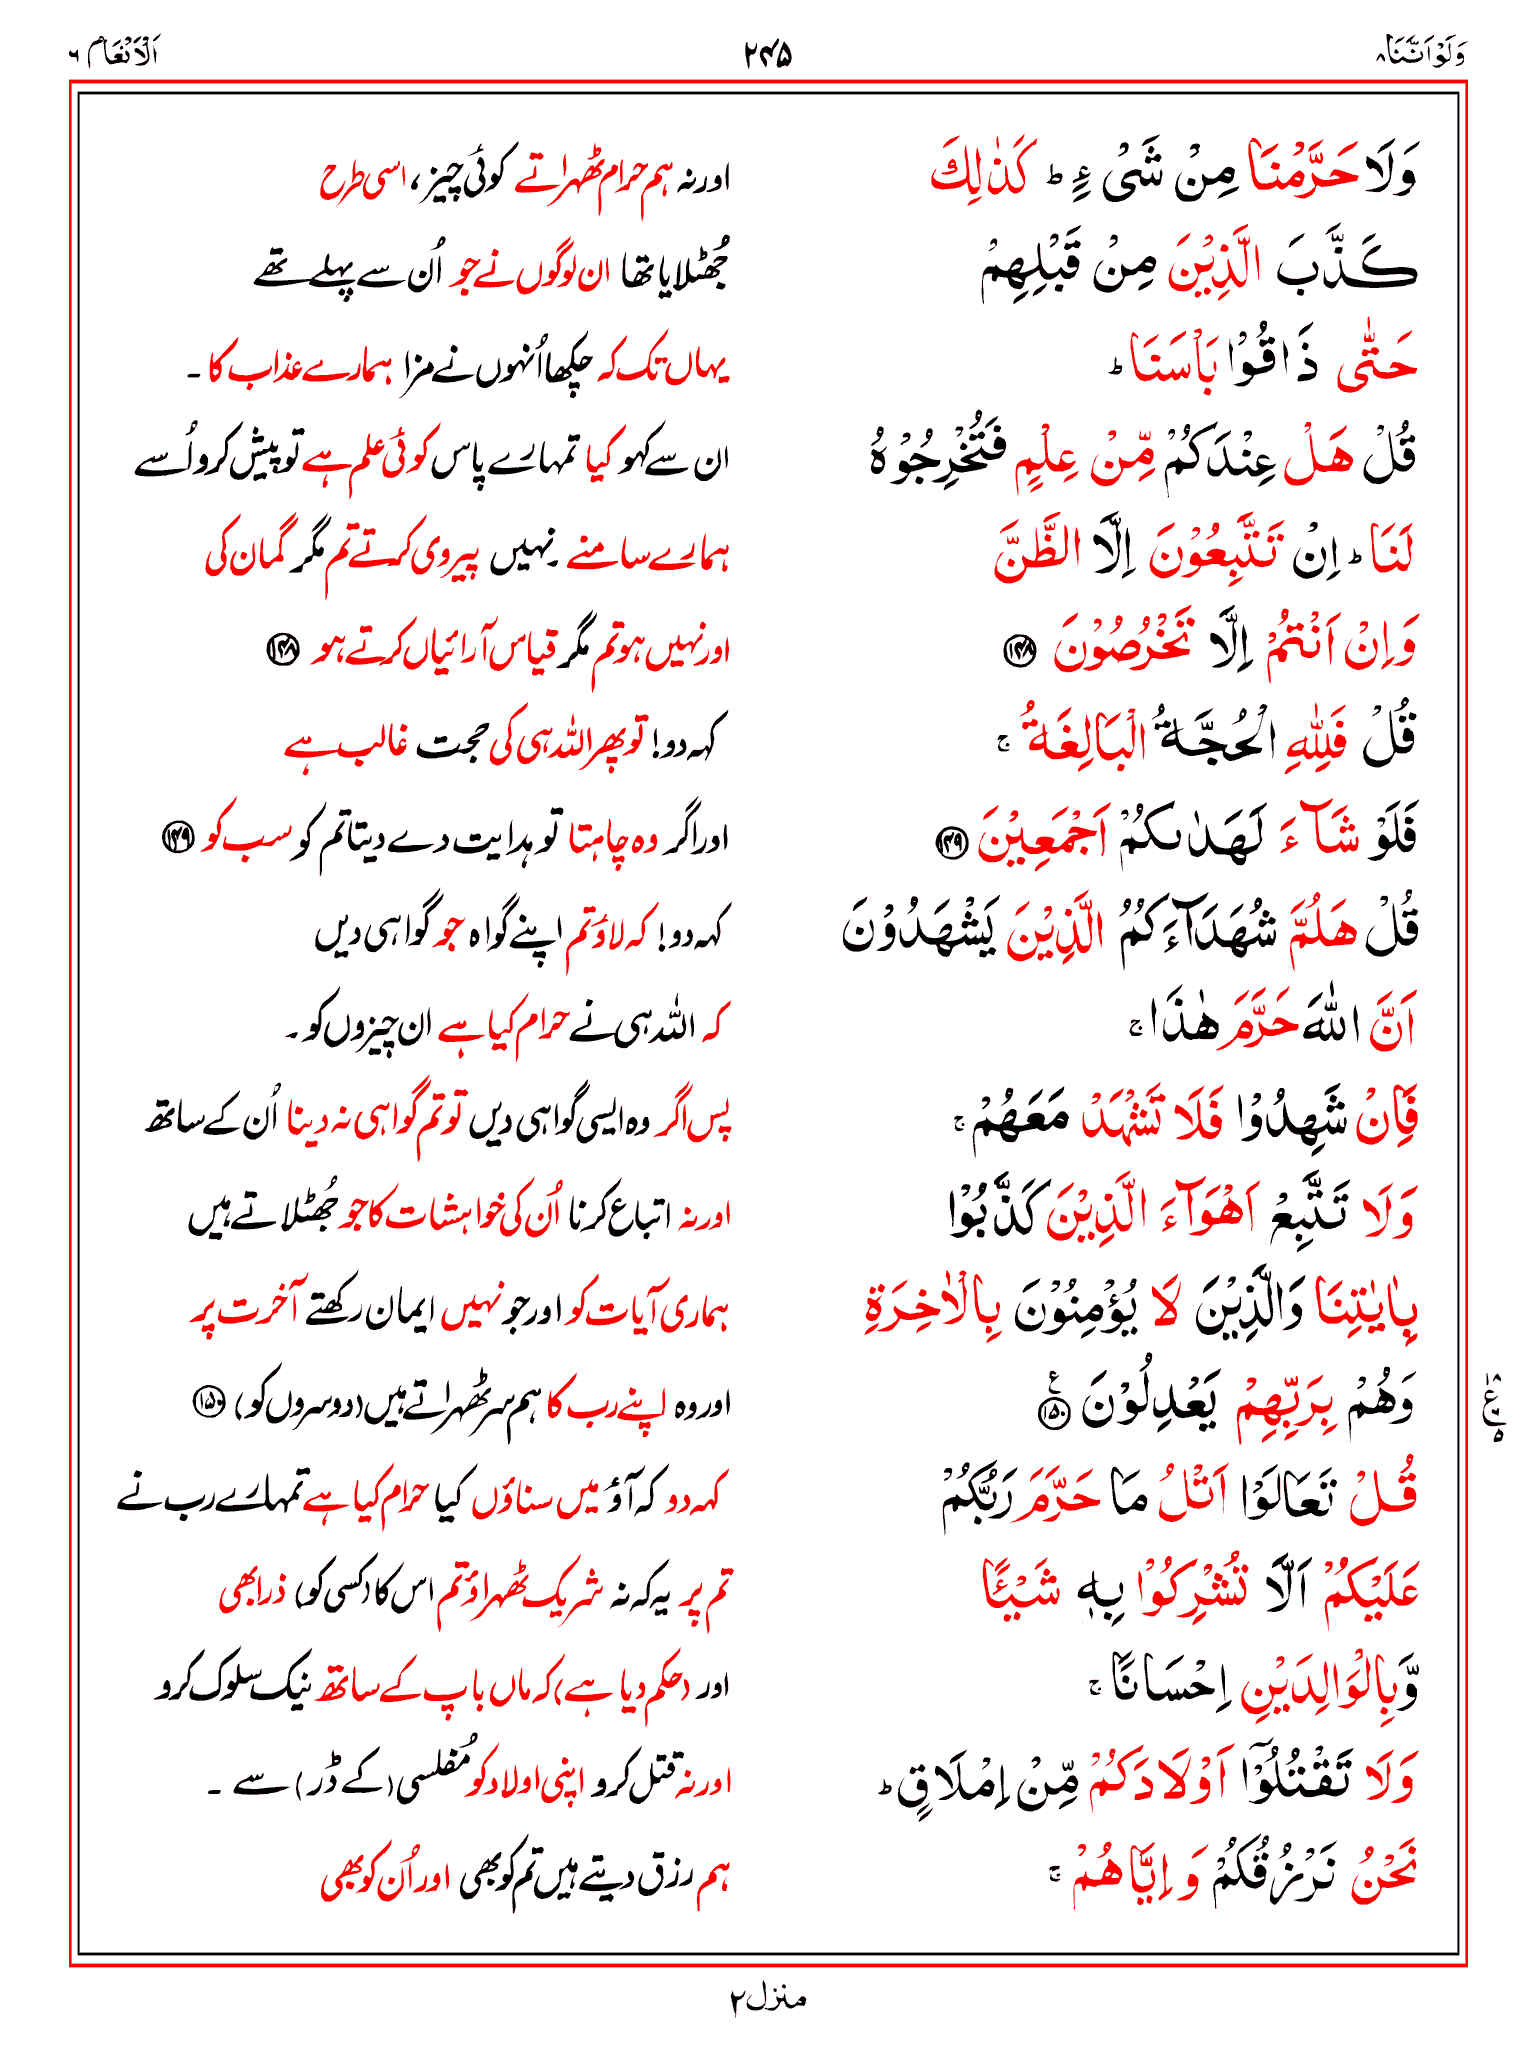 وَلَوْاَنَّنَا ۸ ۲۴۵ اَلْاَنْعَام ۶
وَلَا حَرَّمْنَا مِنْ شَیْ ءٍ ؕ كَذٰلِكَ اور نہ ہم حرام ٹھہراتے کوئی چیز، اسی طرح
كَذَّبَ الَّذِیْنَ مِنْ قَبْلِهِمْ جُھٹلایا تھا ان لوگوں نے جو اُن سے پہلے تھے
حَتّٰی ذَاقُوْا بَاْسَنَا ؕ یہاں تک کہ چکھا اُنہوں نے مزا ہمارے عذاب کا ۔
قُلْ هَلْ عِنْدَكُمْ مِّنْ عِلْمٍ فَتُخْرِجُوْهُ ان سے کہو کیا تمہارے پاس کوئی علم ہے تو پیش کرو اُسے
لَنَا ؕ اِنْ تَتَّبِعُوْنَ اِلَّا الظَّنَّ ہمارے سامنے ۔ نہیں پیروی کرتے تم مگر گمان کی
وَاِنْ اَنْتُمْ اِلَّا تَخْرُصُوْنَ ۱۴۸ اور نہیں ہو تم مگر قیاس آرائیاں کرتے ہو ۱۴۸
قُلْ فَلِلّٰهِ الْحُجَّةُ الْبَالِغَةُ ۚ کہہ دو! تو پھر اللہ ہی کی حجت غالب ہے
فَلَوْ شَآءَ لَهَدٰىكُمْ اَجْمَعِیْنَ ۱۴۹ اور اگر وہ چاہتا تو ہدایت دے دیتا تم کو سب کو ۱۴۹
قُلْ هَلُمَّ شُهَدَآءَكُمُ الَّذِیْنَ یَشْهَدُوْنَ کہہ دو! کہ لاؤ تم اپنے گواہ جو گواہی دیں
اَنَّ اللّٰهَ حَرَّمَ هٰذَا ۚ کہ اللہ ہی نے حرام کیا ہے ان چیزوں کو ۔
فَاِنْ شَهِدُوْا فَلَا تَشْهَدْ مَعَهُمْ ۚ پس اگر وہ ایسی گواہی دیں تو تم گواہی نہ دینا اُن کے ساتھ
وَلَا تَتَّبِعْ اَهْوَآءَ الَّذِیْنَ كَذَّبُوْا اور نہ اتباع کرنا اُن کی خواہشات کا جو جُھٹلاتے ہیں
بِاٰیٰتِنَا وَالَّذِیْنَ لَا یُؤْمِنُوْنَ بِالْاٰخِرَةِ ہماری آیات کو اور جو نہیں ایمان رکھتے آخرت پر
وَهُمْ بِرَبِّهِمْ یَعْدِلُوْنَ ۱۵۰ ع اور وہ اپنے رب کا ہم سر ٹھہراتے ہیں (دوسروں کو) ۱۵۰
قُلْ تَعَالَوْا اَتْلُ مَا حَرَّمَ رَبُّكُمْ کہہ دو کہ آؤ میں سناؤں کیا حرام کیا ہے تمہارے رب نے
عَلَیْكُمْ اَلَّا تُشْرِكُوْا بِهٖ شَیْـًٔا تم پر یہ کہ نہ شریک ٹھہراؤ تم اس کا (کسی کو) ذرا بھی
وَّبِالْوَالِدَیْنِ اِحْسَانًا ۚ اور (حکم دیا ہے) کہ ماں باپ کے ساتھ نیک سلوک کرو
وَلَا تَقْتُلُوْۤا اَوْلَادَكُمْ مِّنْ اِمْلَاقٍ ؕ اور نہ قتل کرو اپنی اولاد کو مُفلسی (کے ڈر) سے ۔
نَحْنُ نَرْزُقُكُمْ وَ اِیَّاهُمْ ۚ ہم رزق دیتے ہیں تم کو بھی اور اُن کو بھی
منزل ۲